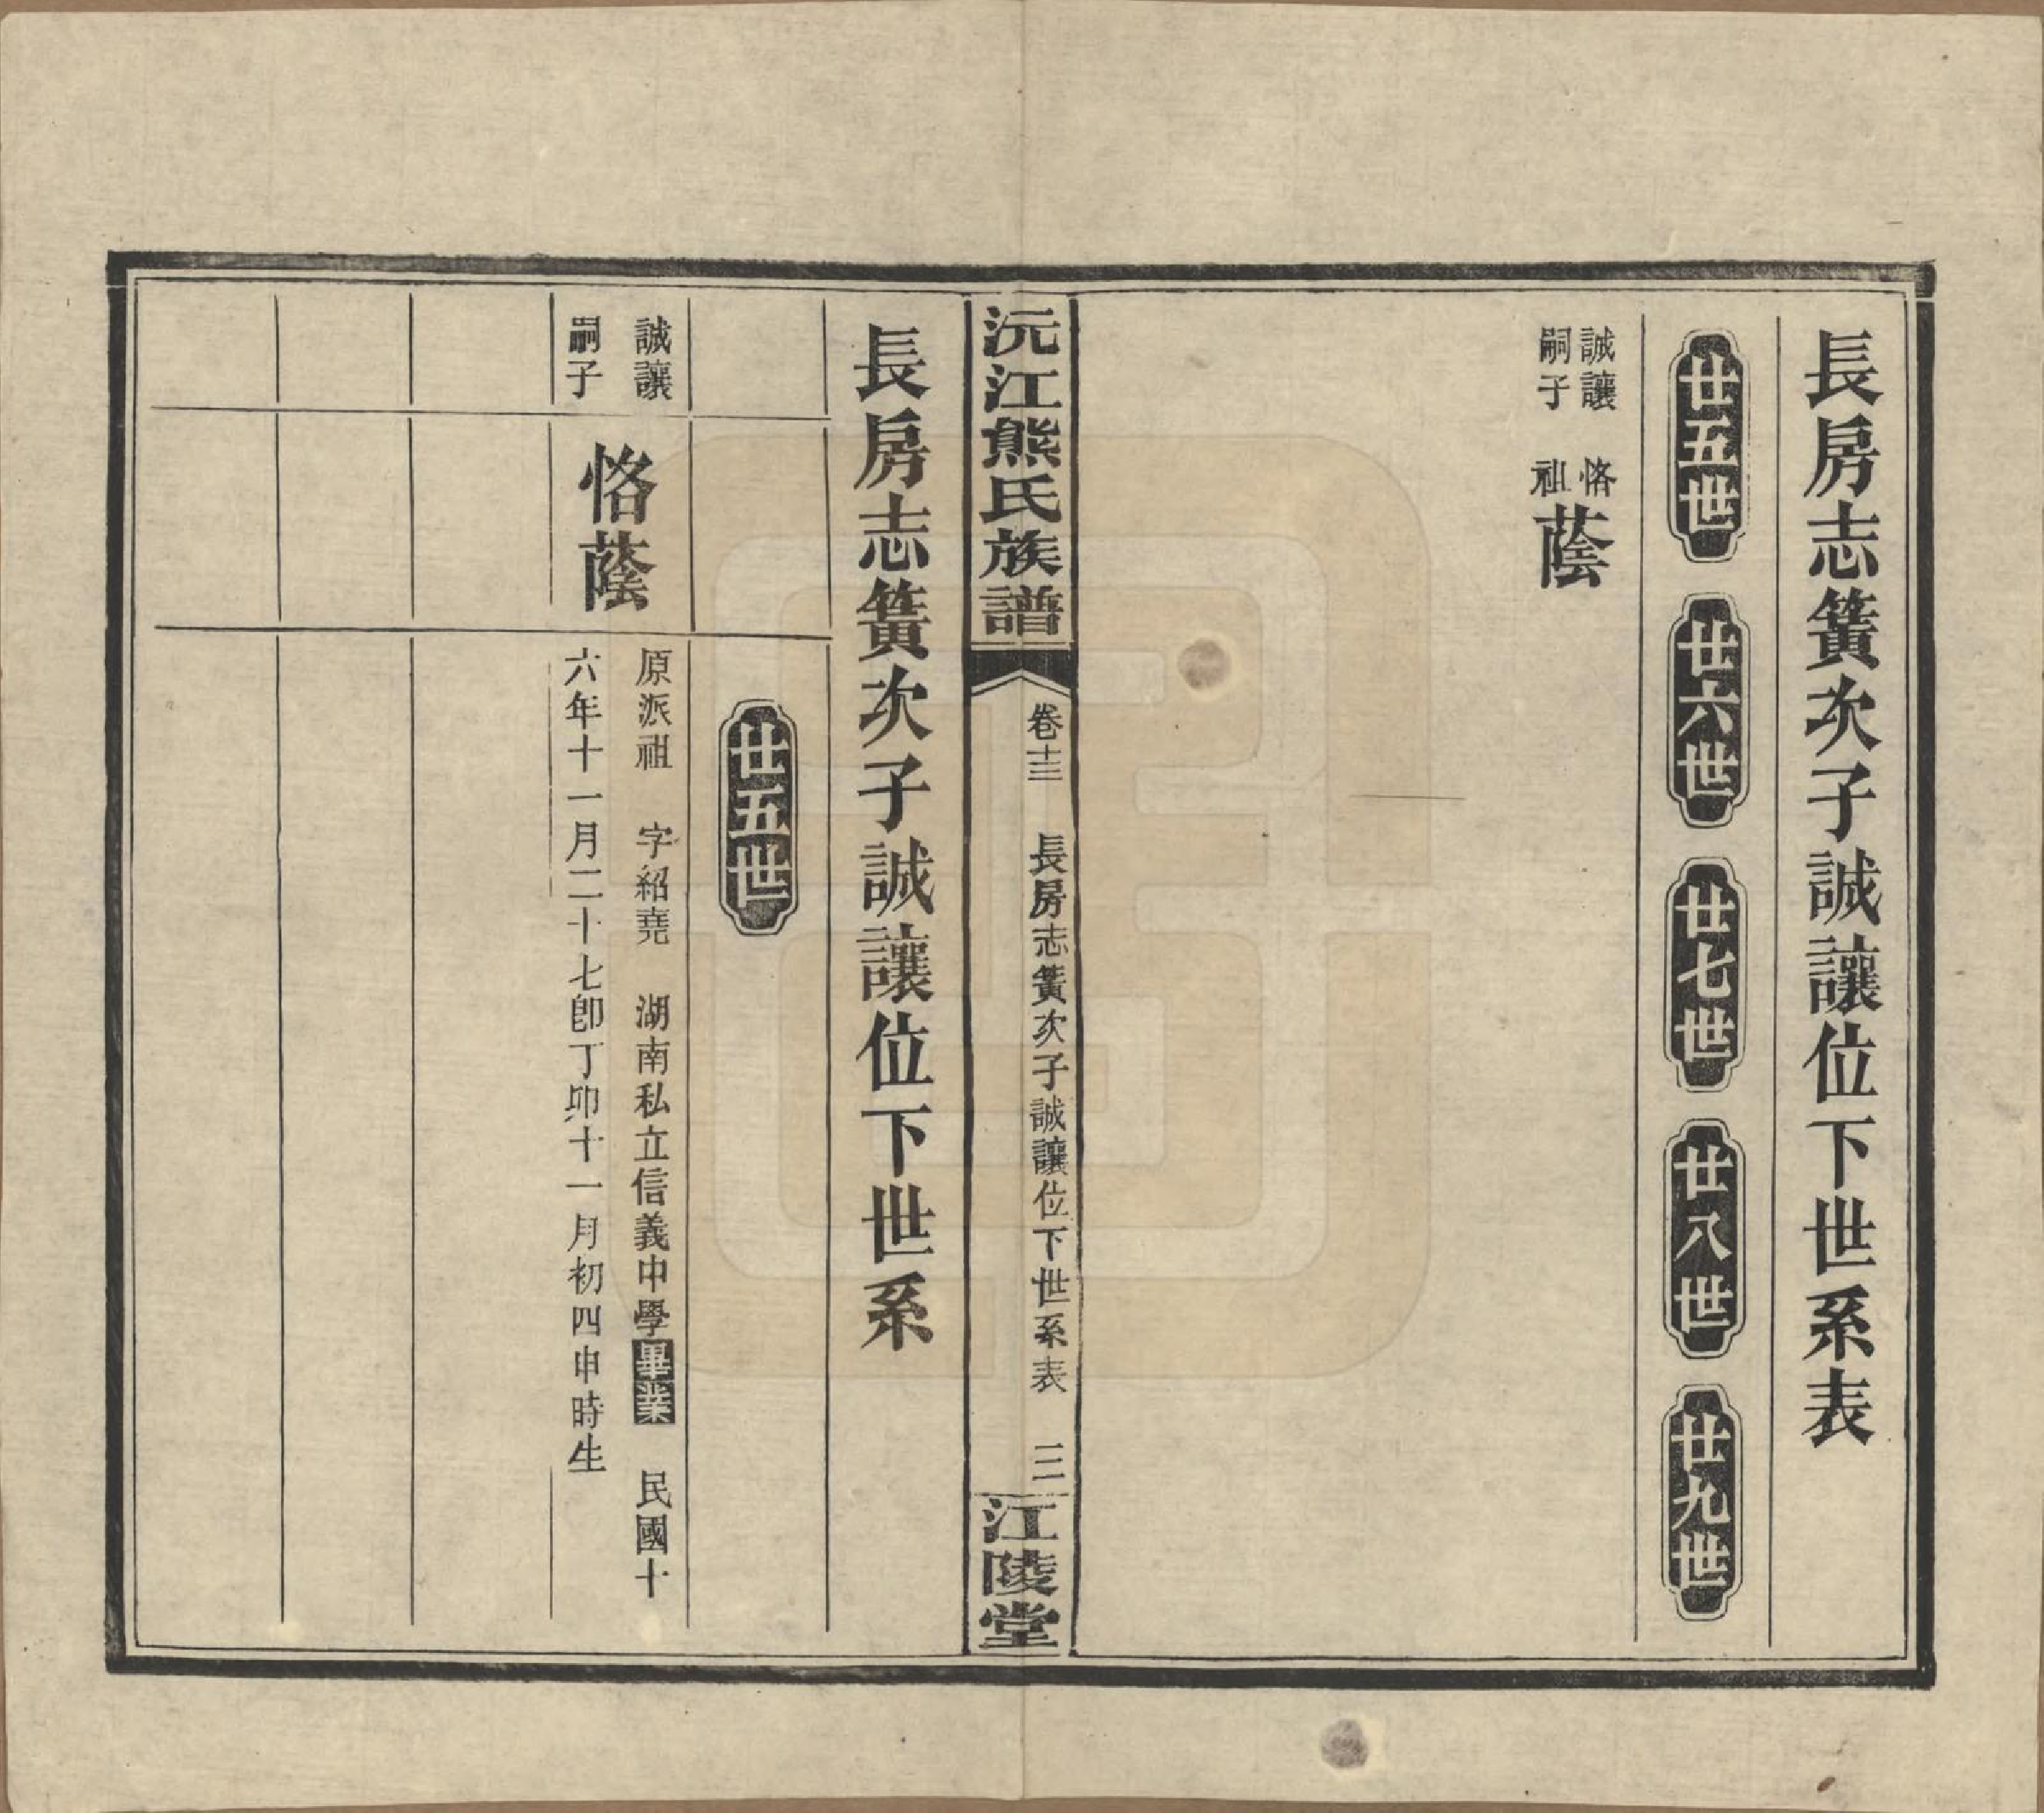 長房志簧次子誠讓位下世系表
廿五世 廿六世 廿七世 廿八世 廿九世
誠讓
嗣子
恪
祖
蔭
沅江熊氏族譜 卷十三 長房志簧次子誠讓位下世系表 三 江陵堂
長房志簧次子誠讓位下世系
廿五世
誠讓
嗣子
恪蔭
原派祖 字紹堯 湖南私立信義中學畢業 民國十
六年十一月二十七卽丁卯十一月初四申時生